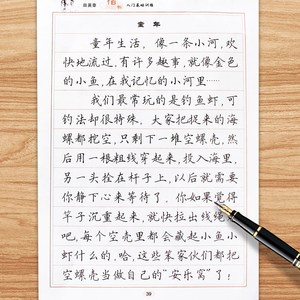 童年
童年生活,像一条小河,欢
快地流过,有许多趣事,就像金色
的小鱼,在我记忆的小河里……
我们最常玩的是钓鱼虾,可
钓法却很特殊。大家把捉来的海
螺都挖空,只剩下一堆空螺壳,然
后用一根粗线穿起来,投入海里,
另一头拴在杆子上,以后就需要
你静下心来等待了。你如果觉得
竿子沉重起来,就快拉出线绳
吧,每个空壳里都会藏起小鱼小
虾什么的,哈,这些笨家伙们都把
空螺壳当做自己的“安乐窝”了!
39